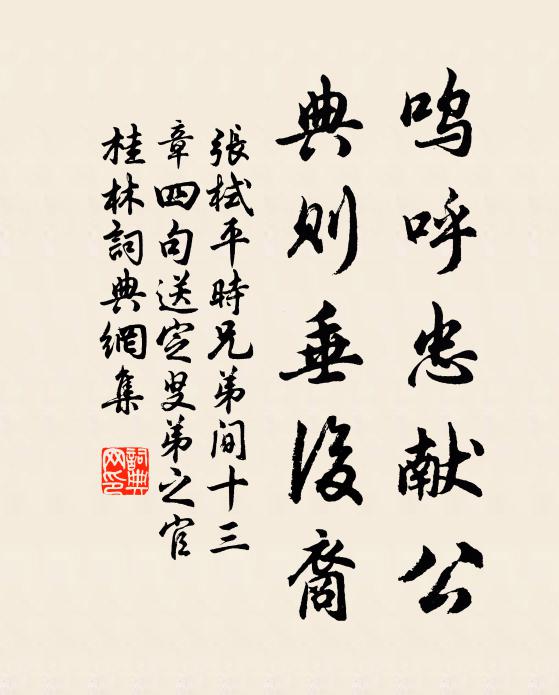 呜呼忠献公
典则垂後裔
張栻平時兄弟间十三
章四句送定叟弟之官
桂林詞典網集
詞典网印